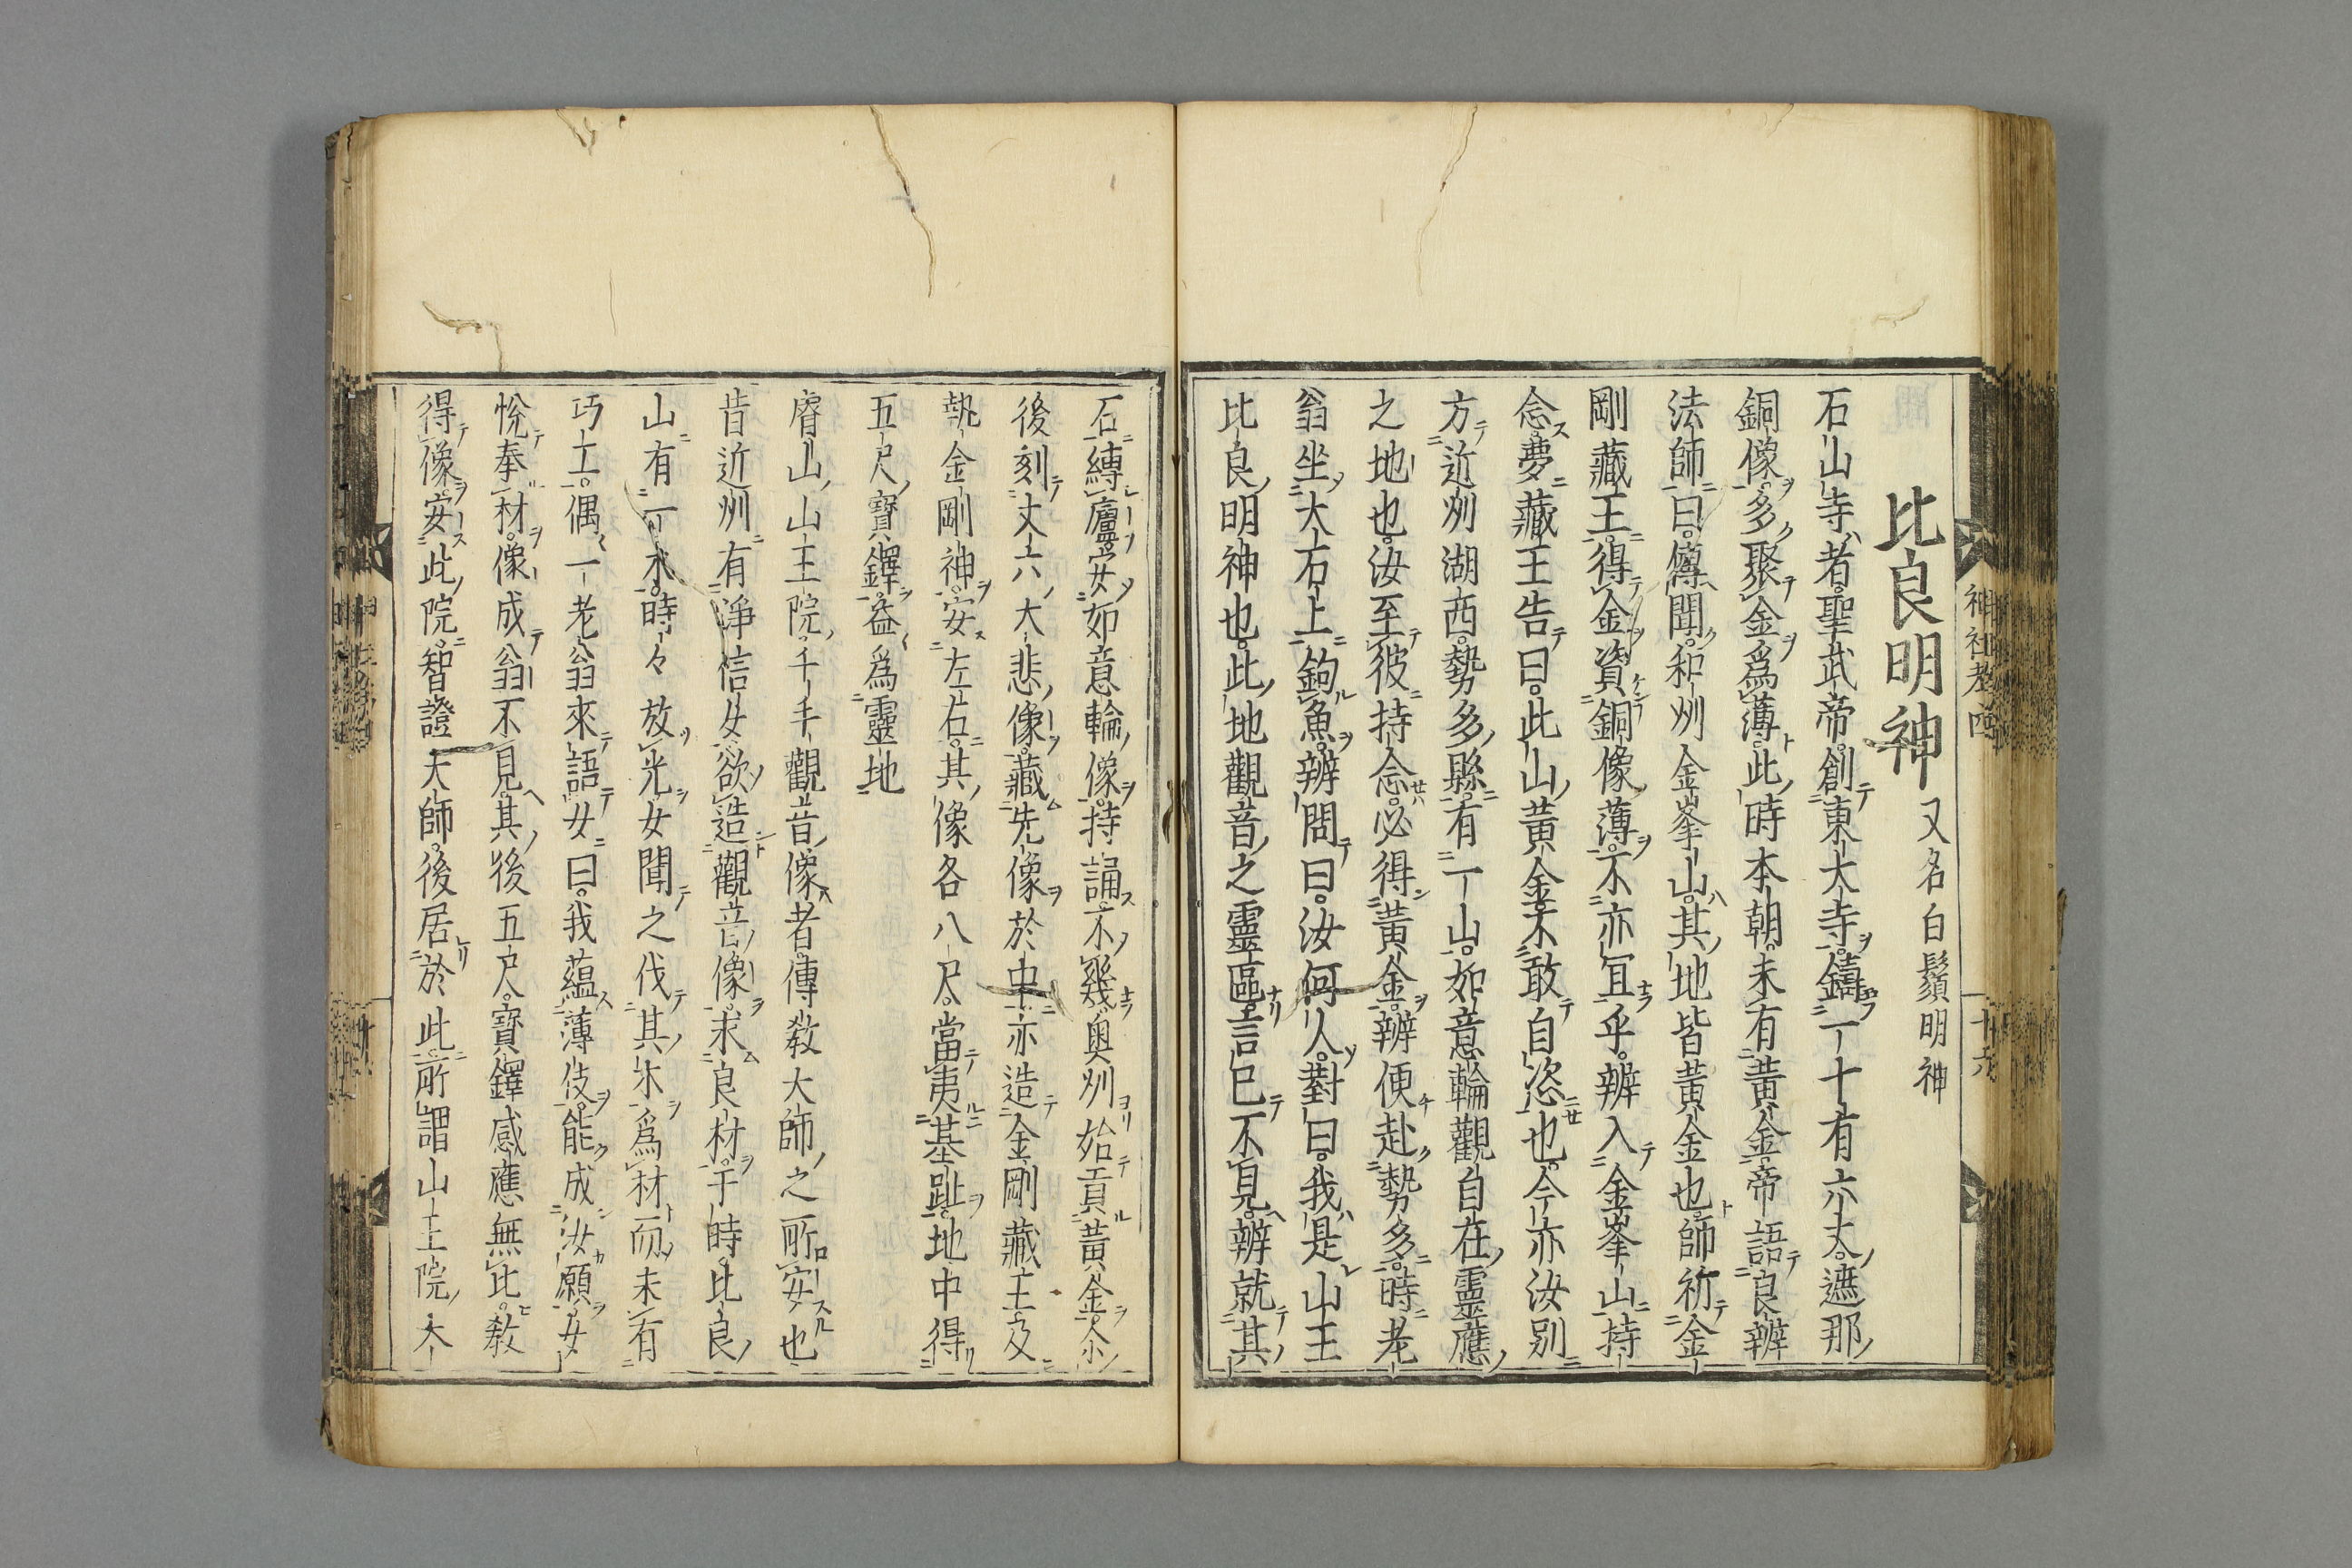 比良明神 又名白鬚明神
石山寺者聖武帝創東大寺鑄一十有六丈遮那
銅像多聚金爲薄此時本朝未有黃金帝語良辨
法師曰傳聞和州金峯山其地皆黃金也師祈金
剛藏王得金資銅像薄不亦冝乎辨入金峯山持
念夢藏王告曰此山黃金不敢自恣也今亦汝別
方近州湖西勢多縣有一山如意輪觀自在靈應
之地也汝至彼持念必得黃金辨便赴勢多時老
翁坐大石上鉤魚辨問曰汝何人對曰我是山王
比良明神也此地觀音之靈區言已不見辨就其
石縛廬安如意輪像持誦不幾奧州始貢黃金尒
後刻丈六大悲像藏先像於中亦造金剛藏王及
執金剛神安左右其像各八尺當夷基趾地中得
五尺寶鐸益爲靈地
睿山山王院千手觀音像者傳教大師之所安也
昔近州有淨信女欲造觀音像求良材于時比良
山有一木時々放光女聞之伐其木爲材而未有
巧工偶一老翁來語女曰我蘊薄伎能成汝願女
悅奉材像成翁不見其後五尺寶鐸感應無比教
得像安此院智證大師後居於此所謂山王院大
神社考四
十六